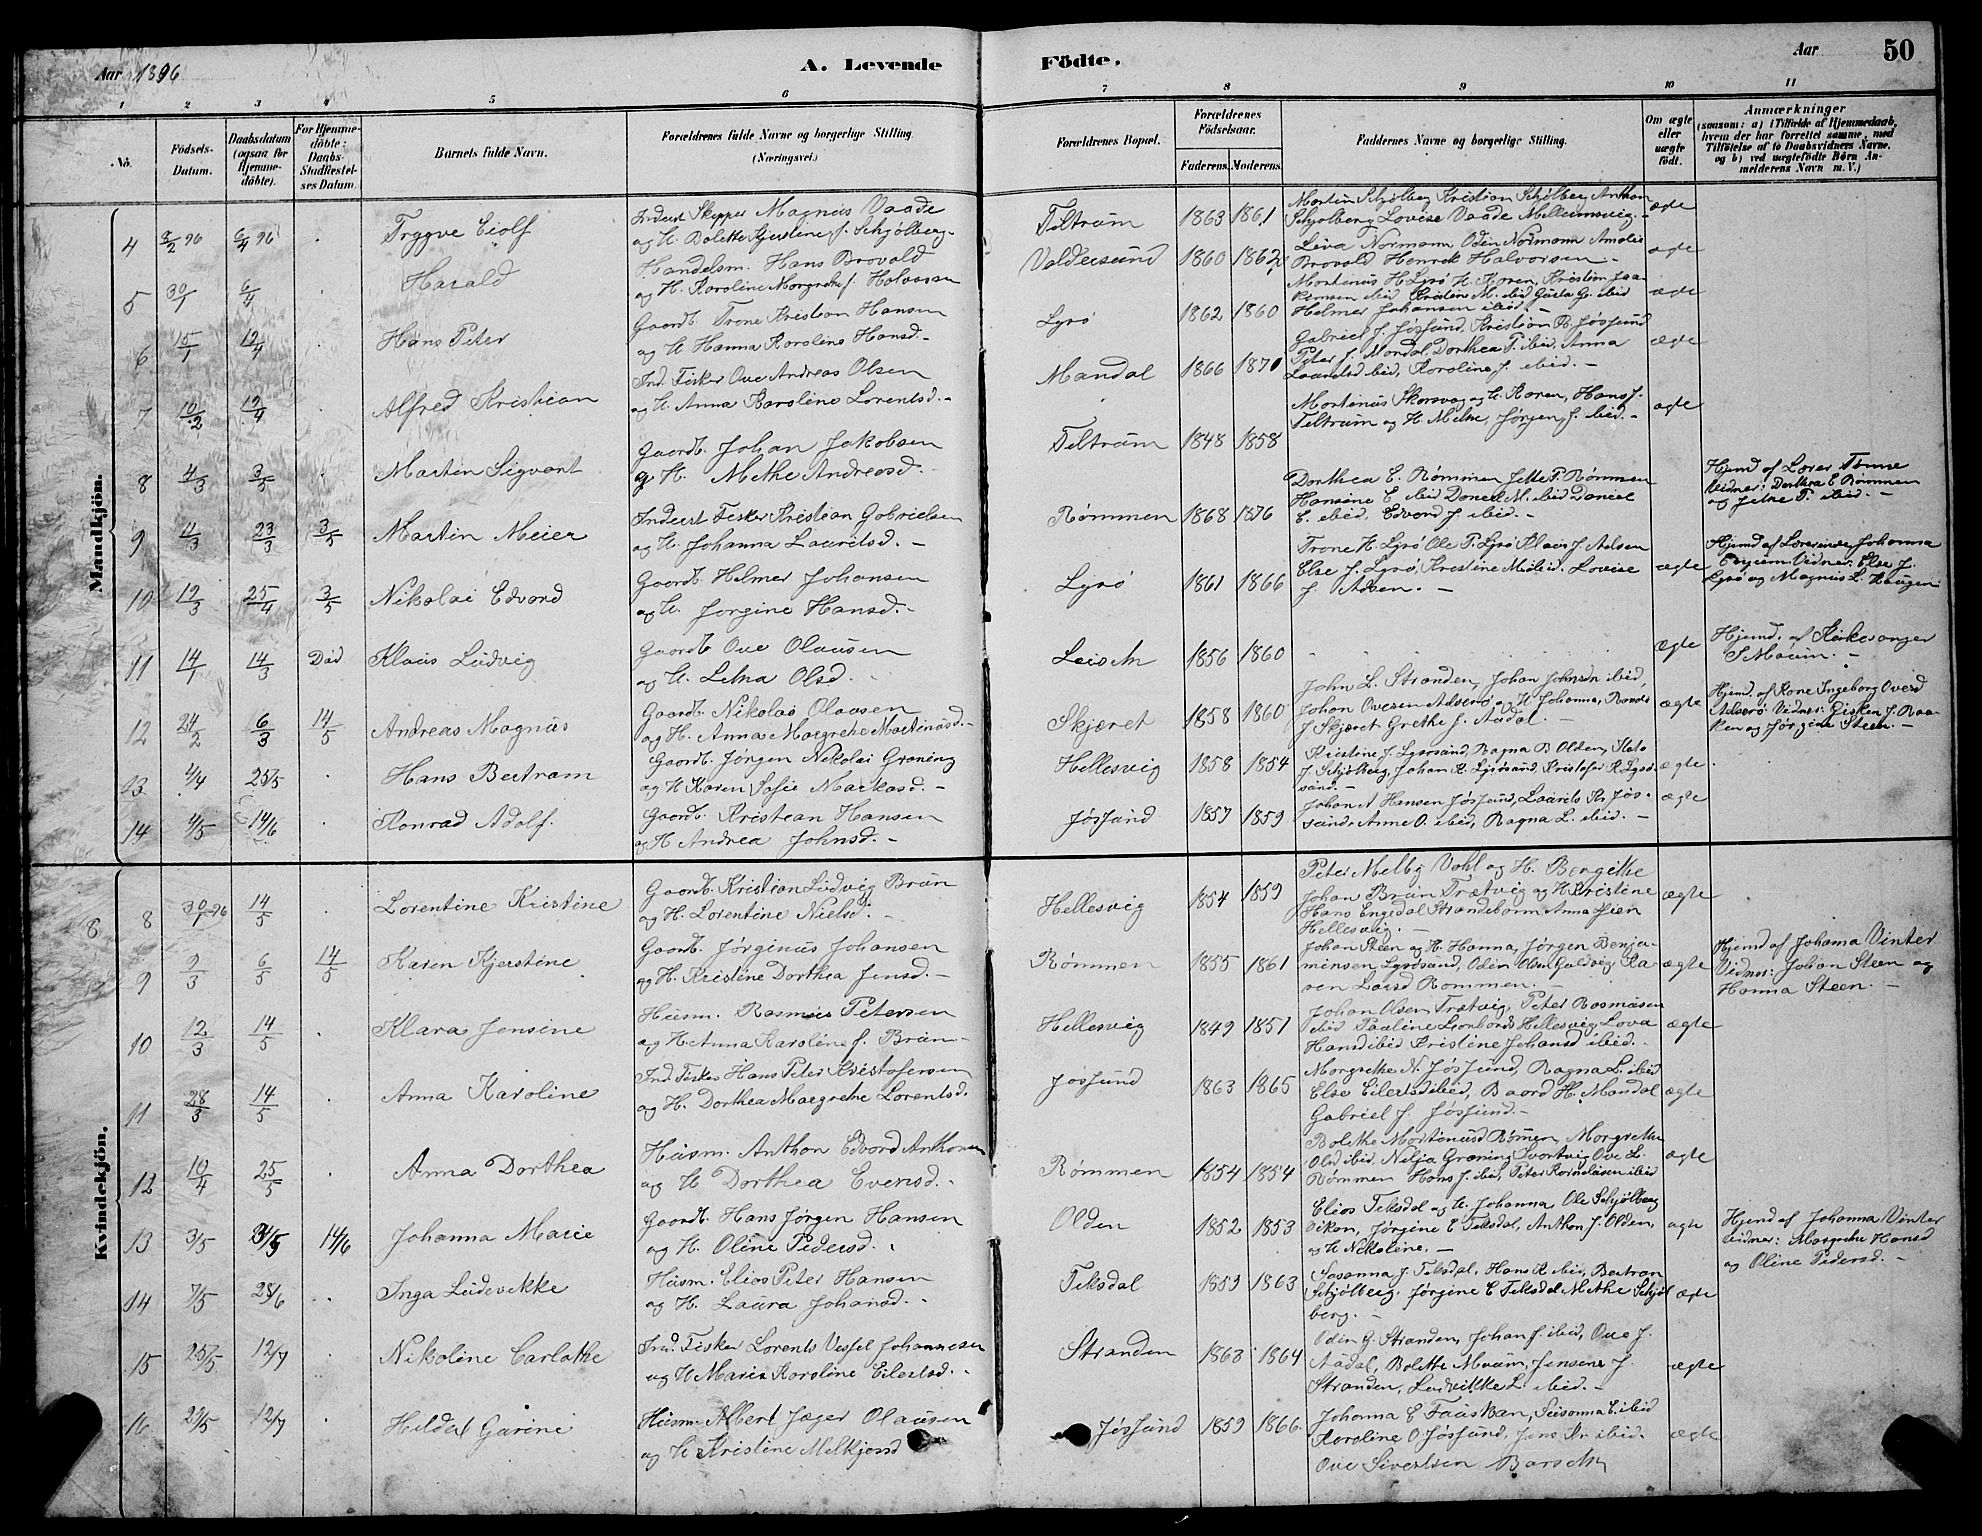 Aar 1896
A. Levende
Födte.
Aar
50
1 2 3 4 5 6 7 8 9 10 11
No.
Födsels-Datum.
Daabsdatum (ogsaa for Hjemme-döbte).
For Hjemme-döbte: Daabs-Stadfæstel-ses Datum.
Barnets fulde Navn.
Forældrenes fulde Navne og borgerlige Stilling.
(Næringsvei.)
Forældrenes Bopæl.
Forældrenes Födselsaar.
Faderens. Moderens.
Faddernes Navne og borgerlige Stilling.
Om ægte eller uægte födt.
Anmærkninger
(saasom: a) i Tilfælde af Hjemmedaab, hvem der har forrettet samme, med Tilföielse af to Daabsvidners Navne, og b) ved uægtefödte Börn An-melderens Navn m. V.)
Mandkjön.
4 9/2 96 6/4 96 Tryggve Eiolf
Inderst Skipper Magnus Vaade
og H. Bolette Kjerstine f. Schjølberg
Teltrum 1863 1861
Schjolberg Lovise Vaade Mellumsvig
ægte
5 30/1 6/4 Harald
Handelsm. Hans Brovold
og H. Karoline Margrethe f. Halvorsen
Valdersund 1860 1862
Brovold Henrik Halvorsen
ægte
6 15/1 12/4 Hans Peter
Gaardb. Trone Kristian Hansen
og H. Hanna Karoline Hansd.
Lysø 1862 1860
Helmer Johansen ibid.
ægte
7 10/2 12/4 Alfred Kristian
Ind. Fisker Ove Andreas Olsen
og H. Anna Karoline Lorentsd.
Mandal 1866 1870
Gabriel J. Jøssund, Kristian R. Jøssund
Peter J. Mandal, Dorthea P. ibid, Anna
Lauritsd ibid, Karoline J. ibid.
ægte
8 4/3 3/5 Martin Sigvart
Gaardb. Johan Jakobsen
og H. Methe Andreasd.
Teltrum 1848 1858
Mortinus Skorsvag og H. Karen, Hans J.
Teltrum og H. Methe, Jørgen J. ibid.
ægte
9 4/3 23/3 3/5 Martin Meier
Inderst Fisker Kristian Gabrielsen
og H. Johanna Lauritsd.
Rømmen 1868 1876
Dorthea E. Rømmen Jette P. Rømmen
Hansine E ibid Daniel M. ibid Daniel
E. ibid, Edvard J. ibid.
Hjemd af Lærer Tinne
Vidner: Dorthea E Rømmen
og Jette P. ibid.
10 12/3 25/4 3/5 Nikolai Edvard
Gaardb. Helmer Johansen
og H. Jørgine Hansd.
Lysø 1861 1866
Trone H. Lysø Ole P. Lysø Klaus J. Adsen
Else J. Lysø, Kristine M ibid. Lovise
J. Adsen.
ægte
Hjemd af Lærerinde Johanna
Vidner: Else J.
Lysø og Magnus L. Haugen
11 14/1 14/3 Død Klaus Ludvig
Gaardb Ove Olausen
og H. Lena Olsd.
1856 1860
ægte
Hjemd. af Kirkesanger
S Moum.
12 24/2 6/3 14/5 Andreas Magnus
Gaardb. Nikolai Olausen
og H. Anna Margrethe Martinusd.
Skjæret 1858 1860
John L. Stranden, Johan Johnsen ibid,
Johan Ovesen Adserø og H Johanna,
J Skjæret Grethe J. Aadal.
ægte
Hjemd. af Kone Ingeborg Oversd
Adserø: Vidner: Gisken J. Raa-
ken og Jørgine Steen.
13 4/4 25/5 Hans Bertram
Gaardb. Jørgen Nikolai Grøning
og H Karen Sofie Markusd.
Hellesvig 1858 1854
Kristine J. Lysøsund, Ragna B Olden,
J. Schjølberg, Johan K. Lysøsund, Kristofer K Lysø-
sund.
ægte
14 4/5 14/6 Konrad Adolf.
Gaardb. Kristian Hansen
og H Andrea Johnsd.
Jøssund 1857 1859
Johan A Hansen Jøssund, Laurits Kr Jøs-
sund Anne O. ibid, Ragna L. ibid.
ægte
Kvindekjön.
8 8 30/1 96 14/5 Lorentine Kristine
Gaardb. Kristian Ludvig Brun
og H. Lorentine Nielsd.
Hellesvig 1854 1859
Peter Melby Vahl og H. Bergithe
Johan Brun Trætvig og H Kristine
Hans Engedal Strandebarm Anna
Hellesvig.
ægte
9 9/3 6/5 14/5 Karen Kjerstine
Gaardb. Jørginus Johansen
og H. Kristine Dorthea Jensd.
Rømmen 1855 1861
Johan Steen og H. Hanna, Jørgen Benja-
minsen Lysøsund, Odin Olsen Guldvig Ka-
ren Larsd Rømmen.
ægte
Hjemd af Johanna Vinter
Vidner: Johan Steen og
Hanna Steen.
10 12/3 14/5 Klara Jensine
Husm. Rasmus Petersen
og H Anna Karoline f. Brun
Hellesvig 1849 1851
Johan Olsen Trætvig, Peter Rasmusen
ibid Pauline Hellesvig Lova
Hansd ibid Kristine Johansd ibid.
ægte
11 28/3 14/5 Anna Karoline
Ind. Fisker Hans Peter Kristofersen
og H. Dorthea Margrethe Lorentsd.
Jøssund 1863 1865
Margrethe N. Jøssund, Ragna L. ibid
Else Eilertsd ibid, Baard H. Mandal
Gabriel J. Jøssund.
ægte
12 10/4 25/5 Anna Dorthea
Husm. Anthon Edvard Anthonsen
og H Dorthea Evensd.
Rømmen 1854 1854
Bolethe Mortinusd Rømmen, Margrethe
Olsd ibid, Nilja Grøning Svartvig Ove L.
Rømmen Hans J. ibid, Peter Kornelisen ibid
ægte
13 3/5 31/5 14/6 Johanna Marie
Gaardb. Hans Jørgen Hansen
og H. Oline Pedersd.
Olden 1852 1853
Elias Teksdal og H. Johanna Ole Schjølberg
Oikan, Jørgine E Teksdal, Anthon J. Olden,
og H Nikoline.
ægte
Hjemd af Johanna Vinter
Vidner: Margrethe Hansd
og Oline Pedersd.
14 7/5 28/6 Inga Ludevikke
Husm. Elias Peter Hansen
og H. Laura Johansd.
Teksdal 1859 1863
Susanna J. Teksdal, Hans K ibid, Bertran
Schjølberg, Jørgine E Teksdal Methe Schjøl
berg.
ægte
15 25/5 12/7 Nikoline Carlothe
Ind. Fisker Lorents Vessel Johannesen
og H Maria Karoline Eilertsd.
Stranden 1863 1864
Odin G. Stranden, Johan J. ibid, Ove J.
Aadal, Bolethe Moum, Jensine J.
Stranden, Ludvikke L. ibid.
ægte
16 29/5 12/7 Hilda Garine
Husm. Albert Jæger Olausen
og H Kristine Melkjorsd
Jøssund 1859 1866
Johanna E Fauskan, Susanna E. ibid
Karoline O Jøssund, Jens Kr. ibid.
Ove Sivertsen
ægte